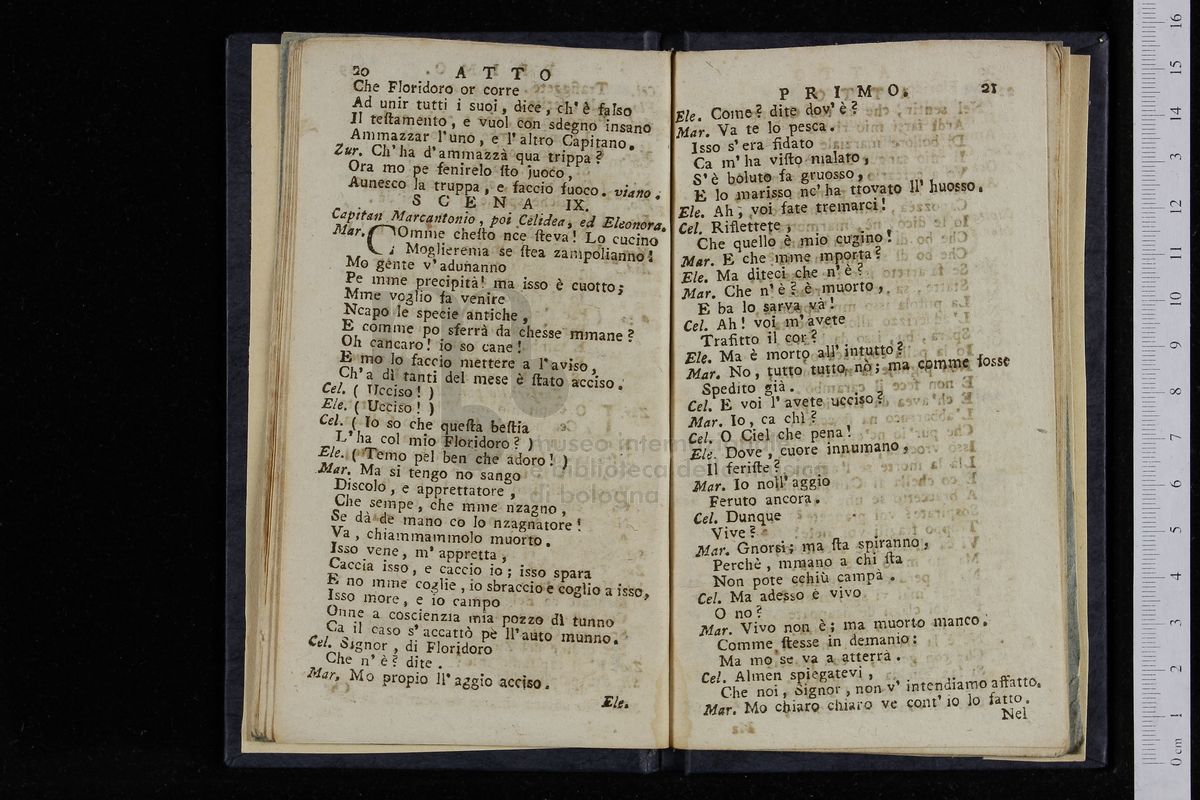 20 ATTO
Che Floridoro or corre
Ad unir tutti i suoi, dice, ch'è falso
Il teſtamento, e vuol con sdegno insano
Ammazzar l'uno, e l'altro Capitano.
Zur. Ch'ha d'ammazzà qua trippa?
Ora mo pe fenirelo ſto juoco,
Aunesco la truppa, e faccio fuoco. viano.
SCENA IX.
Capitan Marcantonio, poi Celidea, ed Eleonora.
Mar. COmme cheſto nce ſteva! Lo cucino
Moglierema se ſtea zampolianno!
Mo gente v'adunanno
Pe mme precipità! ma isso è cuotto;
Mme voglio fa venire
Ncapo le specie antiche,
E comme po sferrà da chesse mmane?
Oh cancaro! io so cane!
E mo lo faccio mettere a l'aviso,
Ch'a dì tanti del mese è ſtato acciso.
Cel. ( Ucciso! )
Ele. ( Ucciso! )
Cel. ( Io so che queſta beſtia
L'ha col mio Floridoro? )
Ele. ( Temo pel ben che adoro! )
Mar. Ma si tengo no sango
Discolo, e apprettatore,
Che sempe, che mme nzagno,
Se dà de mano co lo nzagnatore!
Va, chiammammolo muorto.
Isso vene, m'appretta,
Caccia isso, e caccio io; isso spara
E no mme coglie, io sbraccio e coglio a isso,
Isso more, e io campo
Onne a coscienzia mia pozzo dì tunno
Ca il caso s'accattò pè ll'auto munno.
Cel. Signor, di Floridoro
Che n'è? dite.
Mar. Mo propio ll'aggio acciso.
Ele.
PRIMO. 21
Ele. Come? dite dov'è?
Mar. Va te lo pesca.
Isso s'era fidato
Ca m'ha viſto malato,
S'è boluto fa gruosso,
E lo marisso nc'ha ttovato ll'huosso.
Ele. Ah, voi fate tremarci!
Cel. Riflettete,
Che quello è mio cugino!
Mar. E che mme mporta?
Ele. Ma diteci che n'è?
Mar. Che n'è? è muorto,
E ba lo sarva và!
Cel. Ah! voi m'avete
Trafitto il cor?
Ele. Ma è morto all'intutto?
Mar. No, tutto tutto nò; ma comme fosse
Spedito già.
Cel. E voi l'avete ucciso?
Mar. Io, ca chì?
Cel. O Ciel che pena!
Ele. Dove, cuore innumano,
Il feriſte?
Mar. Io noll'aggio
Feruto ancora.
Cel. Dunque
Vive?
Mar. Gnorsi; ma ſta spiranno,
Perchè, mmano a chi ſta
Non pote cchiù campà.
Cel. Ma adesso è vivo
O no?
Mar. Vivo non è; ma muorto manco.
Comme ſtesse in demanio:
Ma mo se va a atterrà.
Cel. Almen spiegatevi,
Che noi, Signor, non v'intendiamo affatto.
Mar. Mo chiaro chiaro ve cont'io lo fatto.
Nel
museo internazionale
e biblioteca della musica
di bologna